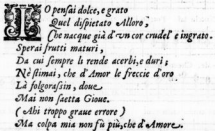 IO pensai dolce, e grato
Quel dispietato Alloro,
Che nacque già d'vn cor crudel' e ingrato.
Sperai frutti maturi,
Da cui sempre li rende acerbi, e duri;
Nè stimai, che d'Amor le freccie d'oro
Là folgorassin, doue
Mai non saetta Gioue.
(Ahi troppo graue errore)
Ma colpa mia non fù più, che d'Amore.